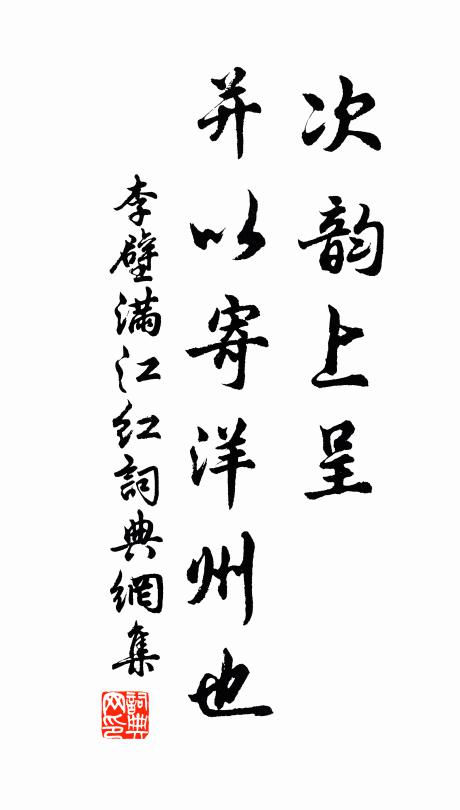 次韵上呈
并以寄洋州也
李壁满江红詞典網集
詞典
网印